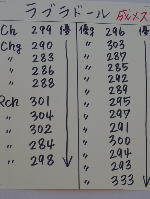 ラブラドール 成メス
Ch 299 優 優g 296 優
Chg 290 〃 303
〃 283 〃 287
〃 286 〃 285
〃 288 〃 292
〃 289
Rch 301 〃 295
〃 304 〃 297
〃 302 〃 291
〃 284 〃 300
〃 298 〃 294
〃 293
〃 333